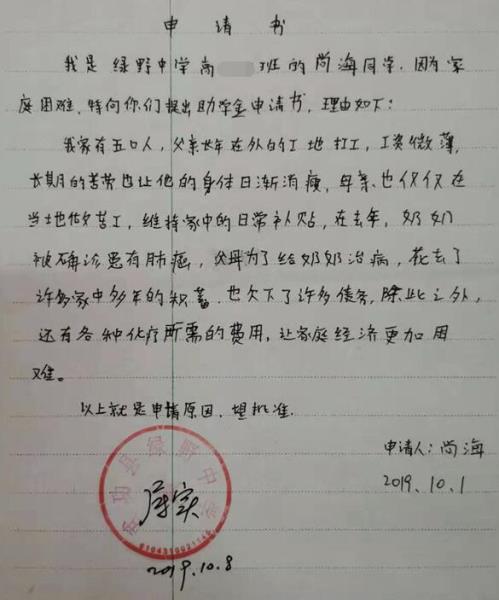 申请书
我是绿野中学高 班的尚海同学，因为家
庭困难，特向你们提出助学金申请书，理由如下：
我家有五口人，父亲长年在外的工地打工，工资微薄，
长期的苦劳也让他的身体日渐消瘦，母亲也仅仅在
当地做苦工，维持家中的日常补贴，在去年，奶奶
被确诊患有肺癌，父母为了给奶奶治病，花去了
许多家中多年的积蓄，也欠下了许多债务，除此之外，
还有各种化疗所需的费用，让家庭经济更加困
难。
以上就是申请原因，望批准．
申请人：尚海
2019.10.1
武功县绿野中学
属实
2019.10.8